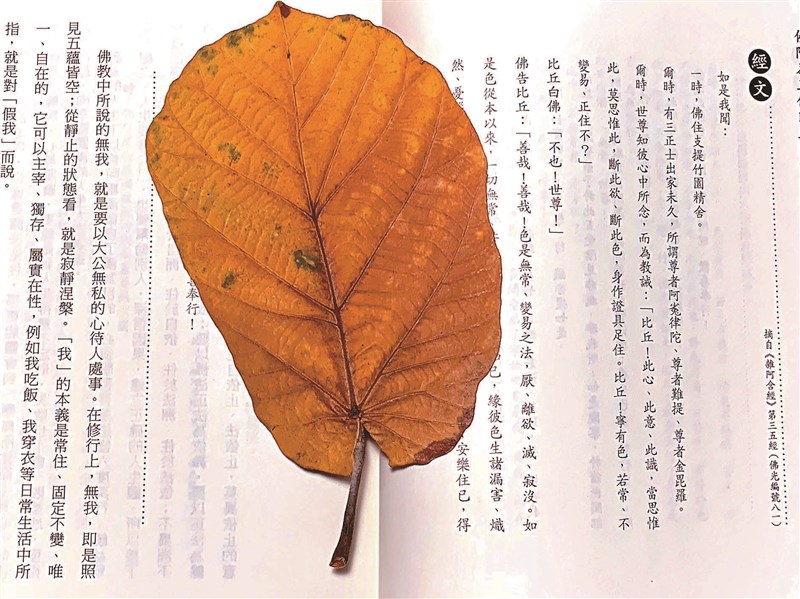 經文
摘自《雜阿含經》第三五經(佛光編號八一)
如是我聞:
一時,佛住支提竹園精舍。
爾時,有三正士出家未久,所謂尊者阿㝹律陀、尊者難提、尊者金毘羅。
爾時,世尊知彼心中所念,而為教誡:「比丘!此心、此意、此識,當思惟
此,莫思惟此,斷此欲、斷此色,身作證具足住。比丘!寧有色,若常、不
變易、正住不?」
比丘白佛:「不也!世尊!」
佛告比丘:「善哉!善哉!色是無常、變易之法,厭、離欲、滅、寂沒。如
是色從本以來,一切無常 已,緣彼色生諸漏害、熾
然、憂 安樂住已,得
奉行!
佛教中所說的無我,就是要以大公無私的心待人處事。在修行上,無我,即是照
見五蘊皆空;從靜止的狀態看,就是寂靜涅槃。「我」的本義是常住、固定不變、唯
一、自在的,它可以主宰、獨存、屬實在性,例如我吃飯、我穿衣等日常生活中所
指,就是對「假我」而說。